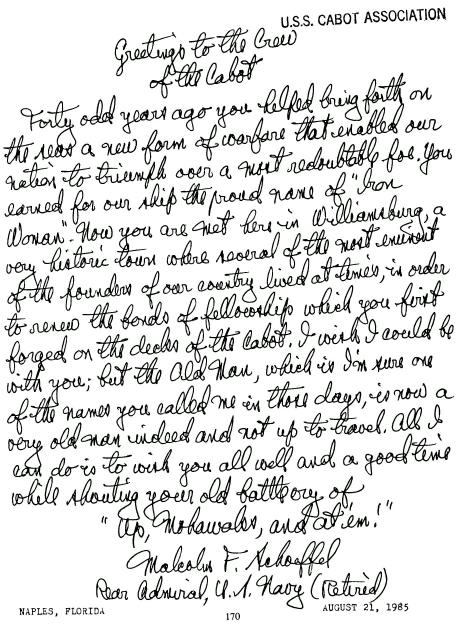 U.S.S. CABOT ASSOCIATION
Greetings to the Crew
of the Cabot
Forty odd years ago you helped bring forth on
the seas a new form of warfare that enabled our
nation to triumph over a most redoubtable foe. You
earned for our ship the proud name of "Iron
Woman". Now you are met here in Williamsburg, a
very historic town where several of the most eminent
of the founders of our country lived at times, in order
to renew the bonds of fellowship which you first
forged on the decks of the Cabot. I wish I could be
with you; but the Old Man, which is I'm sure one
of the names you called me in those days, is now a
very old man indeed and not up to travel. All I
can do is to wish you all well and a good time
while shouting your old battlecry of
"Up, Mohawks, and at 'em!"
Malcolm F. Schoeffel
Rear Admiral, U.S. Navy (Retired)
NAPLES, FLORIDA
AUGUST 21, 1985
170